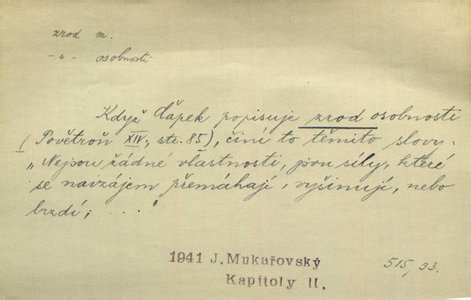 zrod m.
-„- osobnosti
Když Čapek popisuje zrod osobnosti
(Povětroň XIV., str. 85), činí to těmito slovy:
„Nejsou žádné vlastnosti, jsou síly, které
se navzájem přemáhají, vyšinují, nebo
brzdí; . . . ."
1941 J. Mukařovský
Kapitoly II.
515, 33.